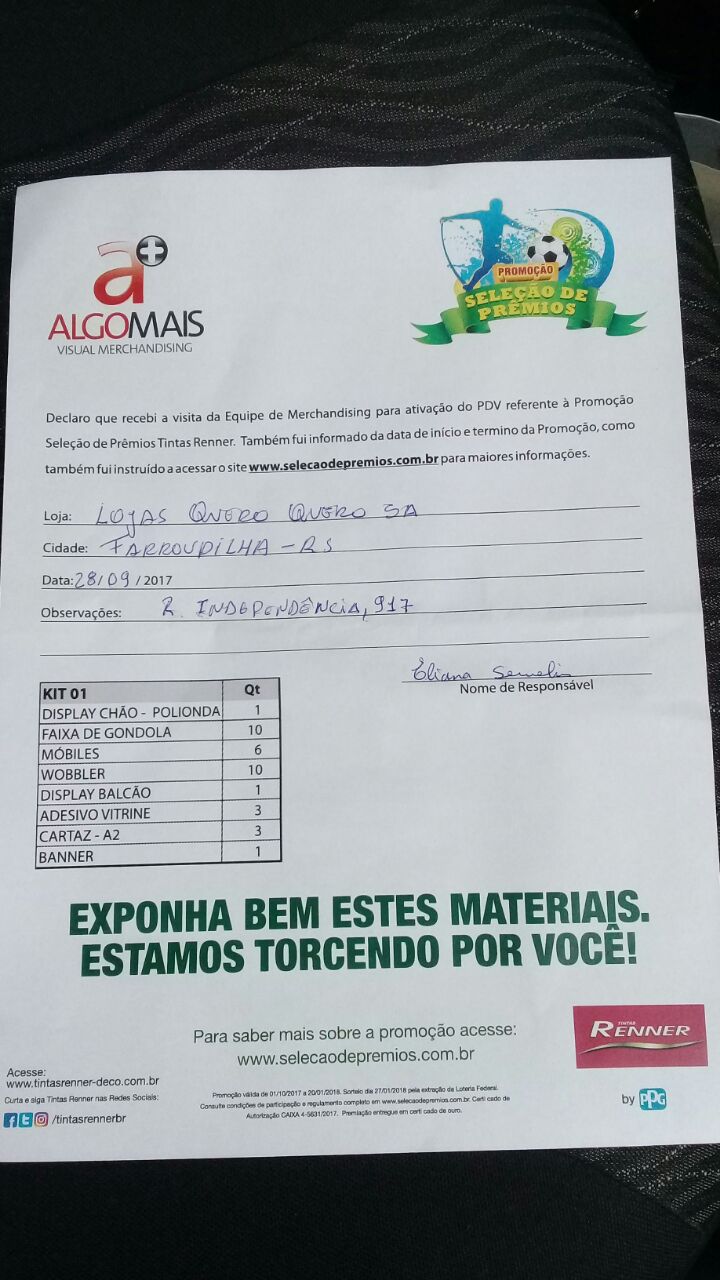 a+
ALGOMAIS
VISUAL MERCHANDISING
PROMOÇÃO
SELEÇÃO DE
PRÊMIOS
Declaro que recebi a visita da Equipe de Merchandising para ativação do PDV referente à Promoção
Seleção de Prêmios Tintas Renner. Também fui informado da data de início e termino da Promoção, como
também fui instruído a acessar o site www.selecaodepremios.com.br para maiores informações.
Loja: LOJAS QUERO QUERO SA
Cidade: FARROUPILHA - RS
Data: 28/09/2017
Observações: R. INDEPENDÊNCIA, 917
Eliana
Nome de Responsável
KIT 01 Qt
DISPLAY CHÃO - POLIONDA 1
FAIXA DE GONDOLA 10
MÓBILES 6
WOBBLER 10
DISPLAY BALCÃO 1
ADESIVO VITRINE 3
CARTAZ - A2 3
BANNER 1
EXPONHA BEM ESTES MATERIAIS.
ESTAMOS TORCENDO POR VOCÊ!
Para saber mais sobre a promoção acesse:
www.selecaodepremios.com.br
TINTAS
RENNER
by PPG
Acesse:
www.tintasrenner-deco.com.br
Curta e siga Tintas Renner nas Redes Sociais:
/tintasrennerbr
Promoção válida de 01/10/2017 a 20/01/2018. Sorteio dia 27/01/2018 pela extração da Loteria Federal.
Consulte condições de participação e regulamento completo em www.selecaodepremios.com.br. Certi cado de
Autorização CAIXA 4-5631/2017. Premiação entregue em certi cado de ouro.